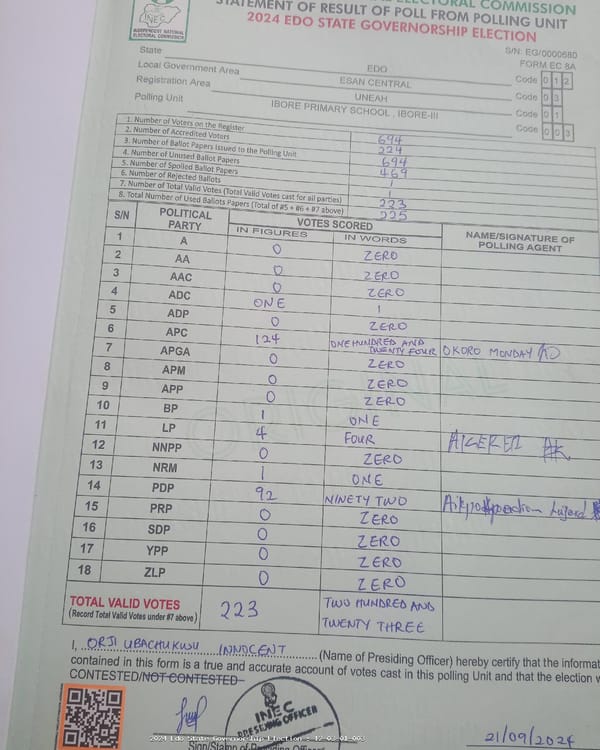 ELECTORAL COMMISSION
STATEMENT OF RESULT OF POLL FROM POLLING UNIT
2024 EDO STATE GOVERNORSHIP ELECTION
INEC
INDEPENDENT NATIONAL
ELECTORAL COMMISSION
S/N: EG/0000680
FORM EC 8A
State EDO Code 0 1 2
Local Government Area ESAN CENTRAL Code 0 3
Registration Area UNEAH Code 0 1
Polling Unit IBORE PRIMARY SCHOOL , IBORE-III Code 0 0 3
1. Number of Voters on the Register 694
2. Number of Accredited Voters 224
3. Number of Ballot Papers Issued to the Polling Unit 694
4. Number of Unused Ballot Papers 469
5. Number of Spoiled Ballot Papers 1
6. Number of Rejected Ballots 1
7. Number of Total Valid Votes (Total Valid Votes cast for all parties) 223
8. Total Number of Used Ballots Papers (Total of #5 + #6 + #7 above) 225
S/N POLITICAL PARTY VOTES SCORED NAME/SIGNATURE OF POLLING AGENT
IN FIGURES IN WORDS
1 A 0 ZERO
2 AA 0 ZERO
3 AAC 0 ZERO
4 ADC ONE 1
5 ADP 0 ZERO
6 APC 124 ONE HUNDRED AND TWENTY FOUR OKORO MONDAY
7 APGA 0 ZERO
8 APM 0 ZERO
9 APP 0 ZERO
10 BP 1 ONE
11 LP 4 FOUR
12 NNPP 0 ZERO
13 NRM 1 ONE
14 PDP 92 NINETY TWO
15 PRP 0 ZERO
16 SDP 0 ZERO
17 YPP 0 ZERO
18 ZLP 0 ZERO
ORIGINAL
TOTAL VALID VOTES 223 TWO HUNDRED AND
(Record Total Valid Votes under #7 above) TWENTY THREE
I, ORJI UBACHUKWU INNOCENT (Name of Presiding Officer) hereby certify that the informat
contained in this form is a true and accurate account of votes cast in this polling Unit and that the election w
CONTESTED/NOT CONTESTED
INEC
PRESIDING OFFICER
2024 Edo State Governorship Election : 12-03-01-003
Sign/Stamp of Presiding Officer
21/09/2024